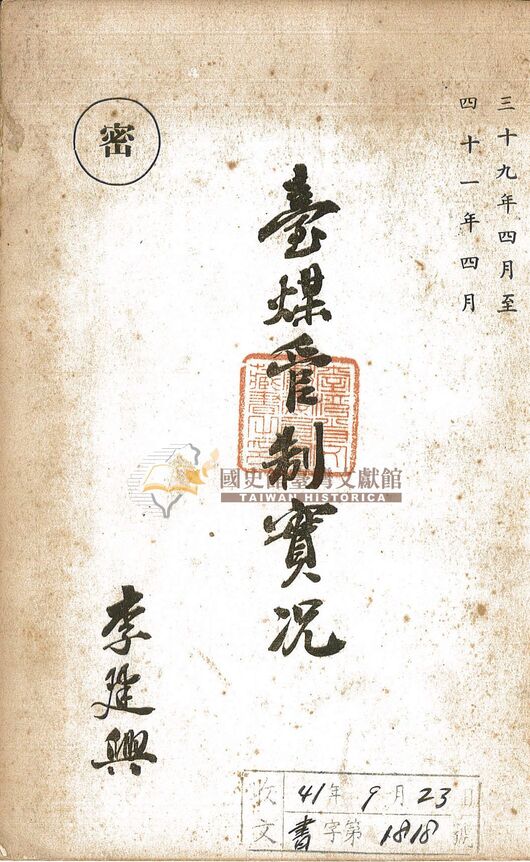 三十九年四月至
四十一年四月
密
臺煤管制實況
國史館臺灣文獻館
TAIWAN HISTORICA
李建興
收 41年 9月23日
文 書字第1818號